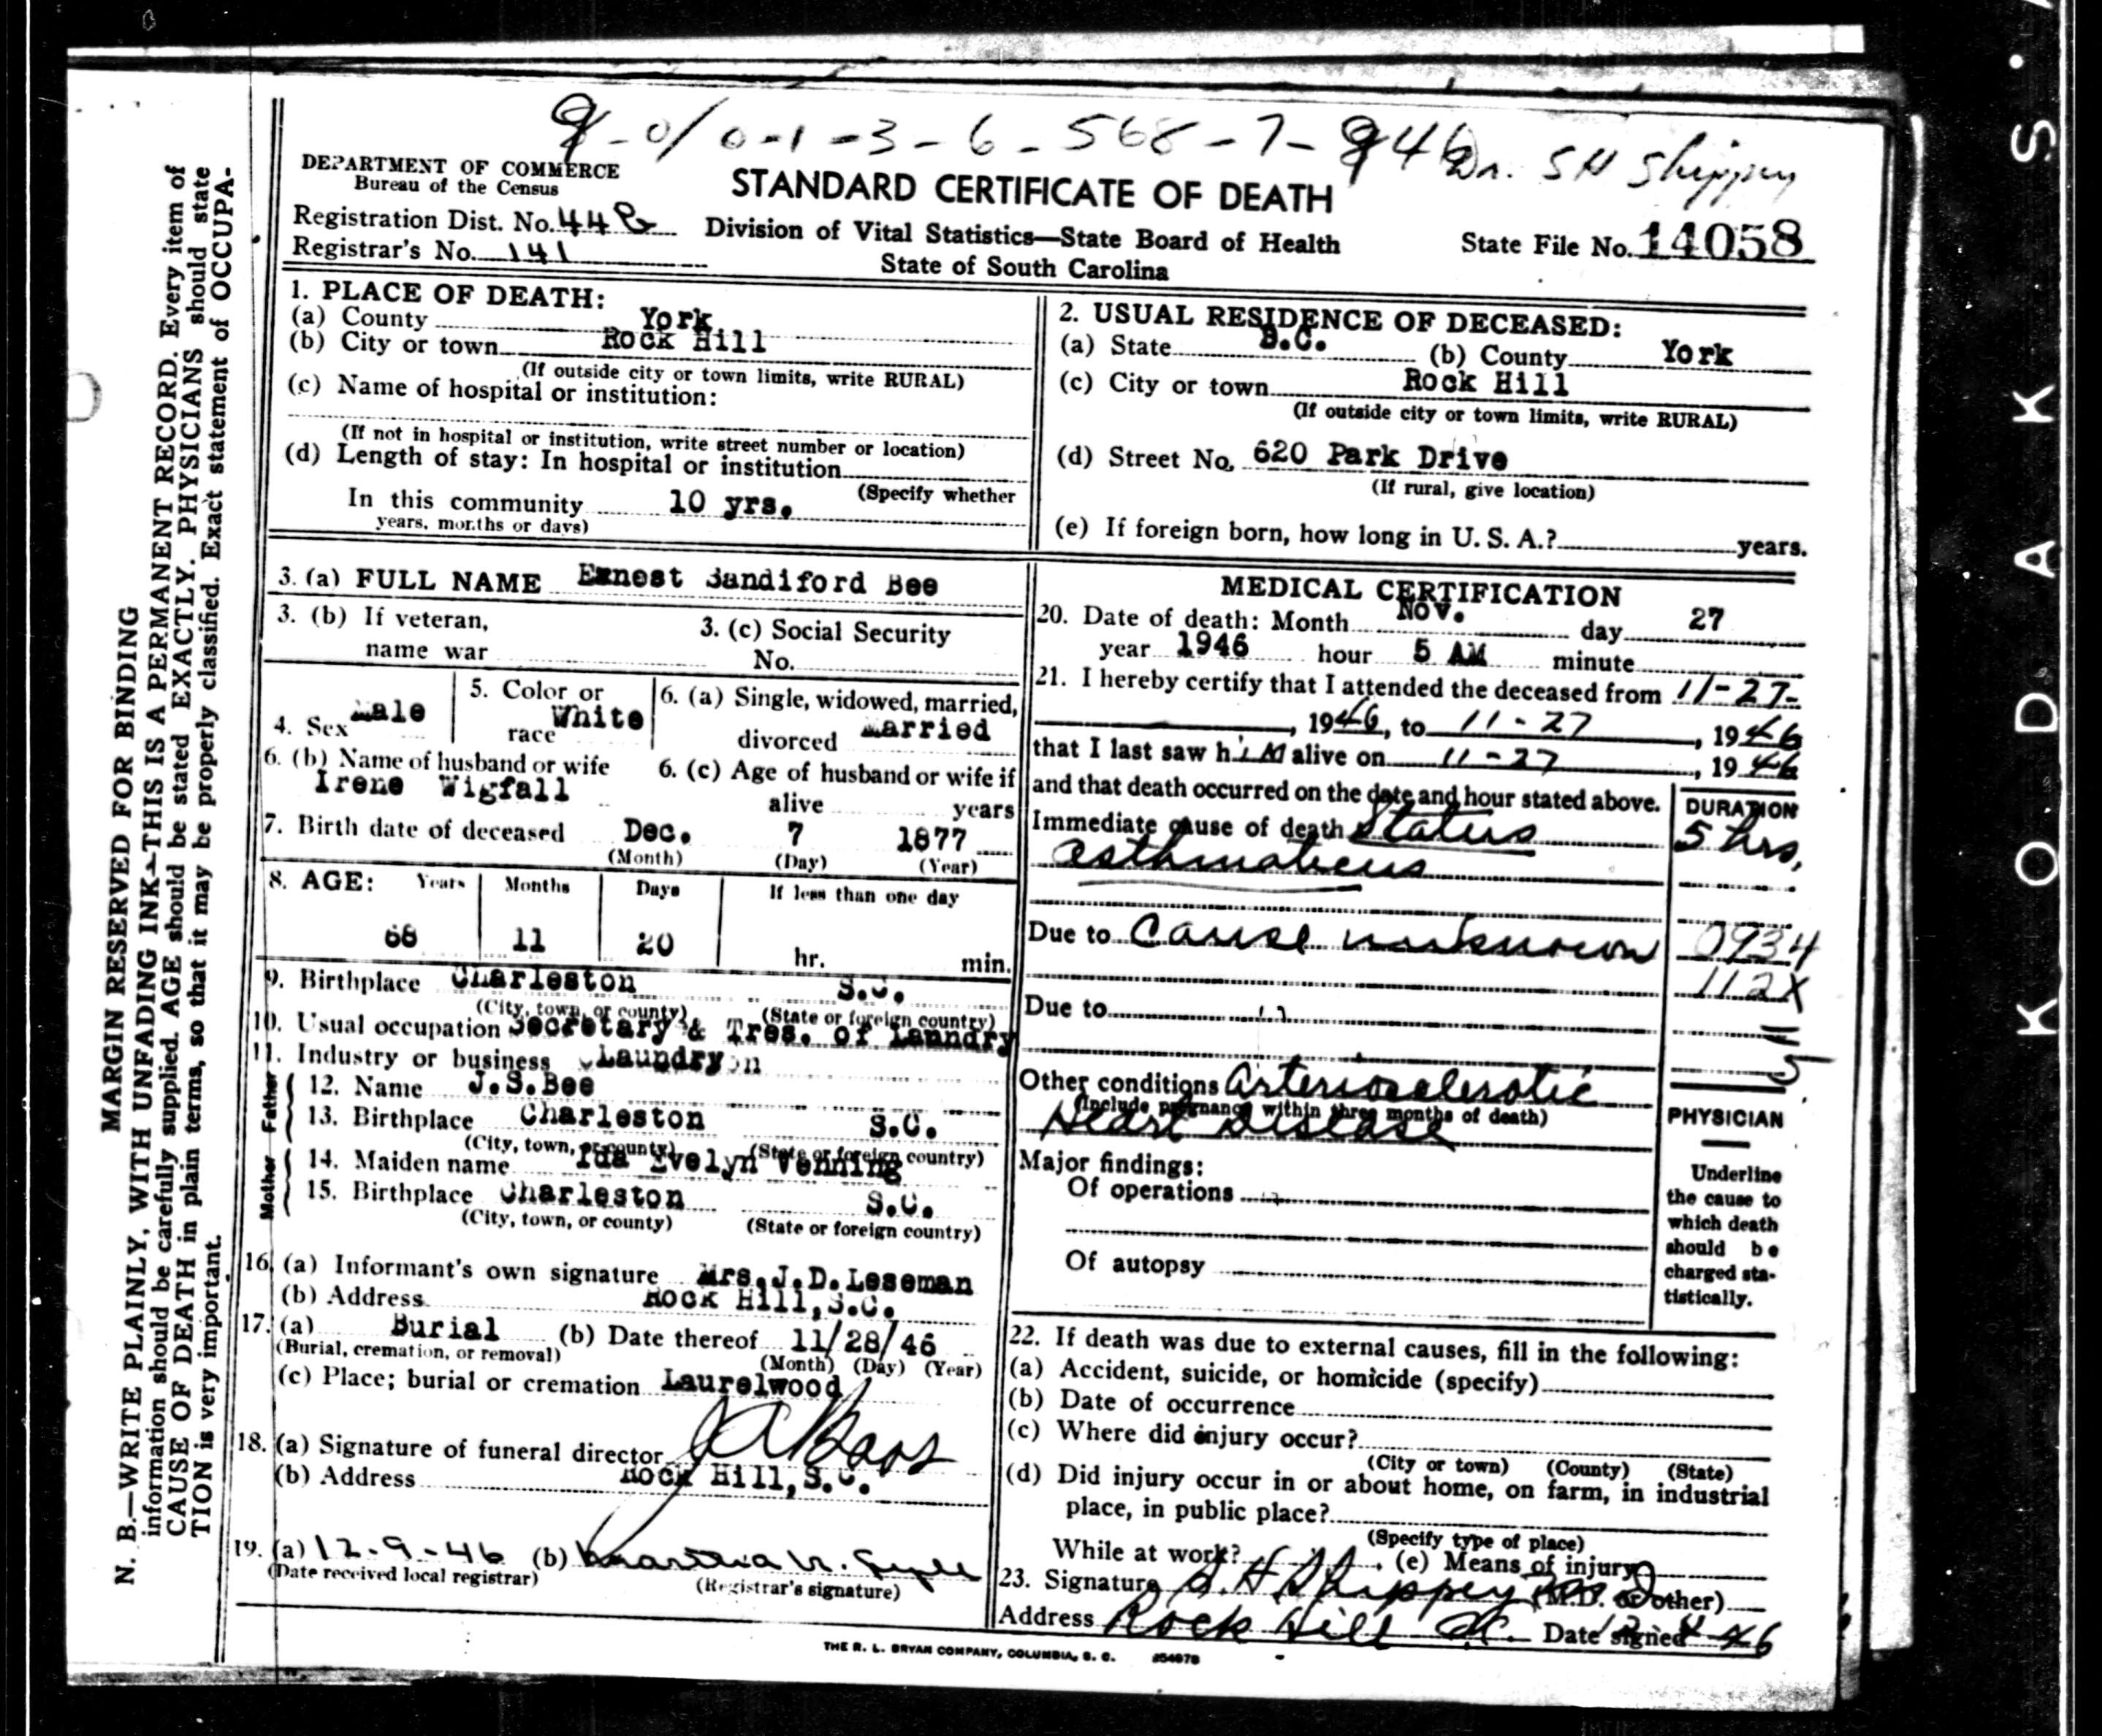 9-0/0-1-3-6-568-7-946 Dr. S H Shippey
DEPARTMENT OF COMMERCE
Bureau of the Census
STANDARD CERTIFICATE OF DEATH
Registration Dist. No. 44
Division of Vital Statistics—State Board of Health
State File No. 14058
Registrar's No. 141
State of South Carolina
1. PLACE OF DEATH:
(a) County York
(b) City or town Rock Hill
(If outside city or town limits, write RURAL)
(c) Name of hospital or institution:
(If not in hospital or institution, write street number or location)
(d) Length of stay: In hospital or institution
(Specify whether
In this community 10 yrs.
years, months or days)
2. USUAL RESIDENCE OF DECEASED:
(a) State S.C. (b) County York
(c) City or town Rock Hill
(If outside city or town limits, write RURAL)
(d) Street No. 620 Park Drive
(If rural, give location)
(e) If foreign born, how long in U. S. A.? years.
3. (a) FULL NAME Ernest Sandiford Bee
3. (b) If veteran,
name war
3. (c) Social Security
No.
4. Sex Male
5. Color or
race White
6. (a) Single, widowed, married,
divorced Married
6. (b) Name of husband or wife
Irene Wigfall
6. (c) Age of husband or wife if
alive years
7. Birth date of deceased Dec. 7 1877
(Month) (Day) (Year)
8. AGE: Years Months Days If less than one day
68 11 20 hr. min.
9. Birthplace Charleston S.C.
(City, town, or county) (State or foreign country)
10. Usual occupation Secretary & Tres. of Laundry
11. Industry or business Laundry
Father
12. Name J.S.Bee
13. Birthplace Charleston S.C.
(City, town, or county) (State or foreign country)
Mother
14. Maiden name Ida Evelyn Venning
15. Birthplace Charleston S.C.
(City, town, or county) (State or foreign country)
16. (a) Informant's own signature Mrs.J.D.Leseman
(b) Address Rock Hill,S.C.
17. (a) Burial (b) Date thereof 11/28/46
(Burial, cremation, or removal) (Month) (Day) (Year)
(c) Place; burial or cremation Laurelwood
18. (a) Signature of funeral director
(b) Address Rock Hill,S.C.
19. (a) 12-9-46 (b) Martha
(Date received local registrar) (Registrar's signature)
MEDICAL CERTIFICATION
20. Date of death: Month Nov. day 27
year 1946 hour 5 AM minute
21. I hereby certify that I attended the deceased from 11-27-
, 1946, to 11-27, 1946
that I last saw him alive on 11-27, 1946
and that death occurred on the date and hour stated above.
DURATION
Immediate cause of death Status 5 hrs.
asthmaticus
Due to Cause unknown 0934
112X
Due to
5
Other conditions Arteriosclerotic
(Include pregnancy within three months of death)
Heart Disease
Major findings:
Of operations
Of autopsy
PHYSICIAN
Underline
the cause to
which death
should be
charged sta-
tistically.
22. If death was due to external causes, fill in the following:
(a) Accident, suicide, or homicide (specify)
(b) Date of occurrence
(c) Where did injury occur?
(City or town) (County) (State)
(d) Did injury occur in or about home, on farm, in industrial
place, in public place?
(Specify type of place)
While at work? (e) Means of injury
23. Signature S.H Shippey (M.D. or other)
Address Rock Hill SC. Date signed 12-4-46
THE R. L. BRYAN COMPANY, COLUMBIA, S. C.
MARGIN RESERVED FOR BINDING
N. B.—WRITE PLAINLY, WITH UNFADING INK—THIS IS A PERMANENT RECORD. Every item of
information should be carefully supplied. AGE should be stated EXACTLY. PHYSICIANS should state
CAUSE OF DEATH in plain terms, so that it may be properly classified. Exact statement of OCCUPA-
TION is very important.
KODAK S